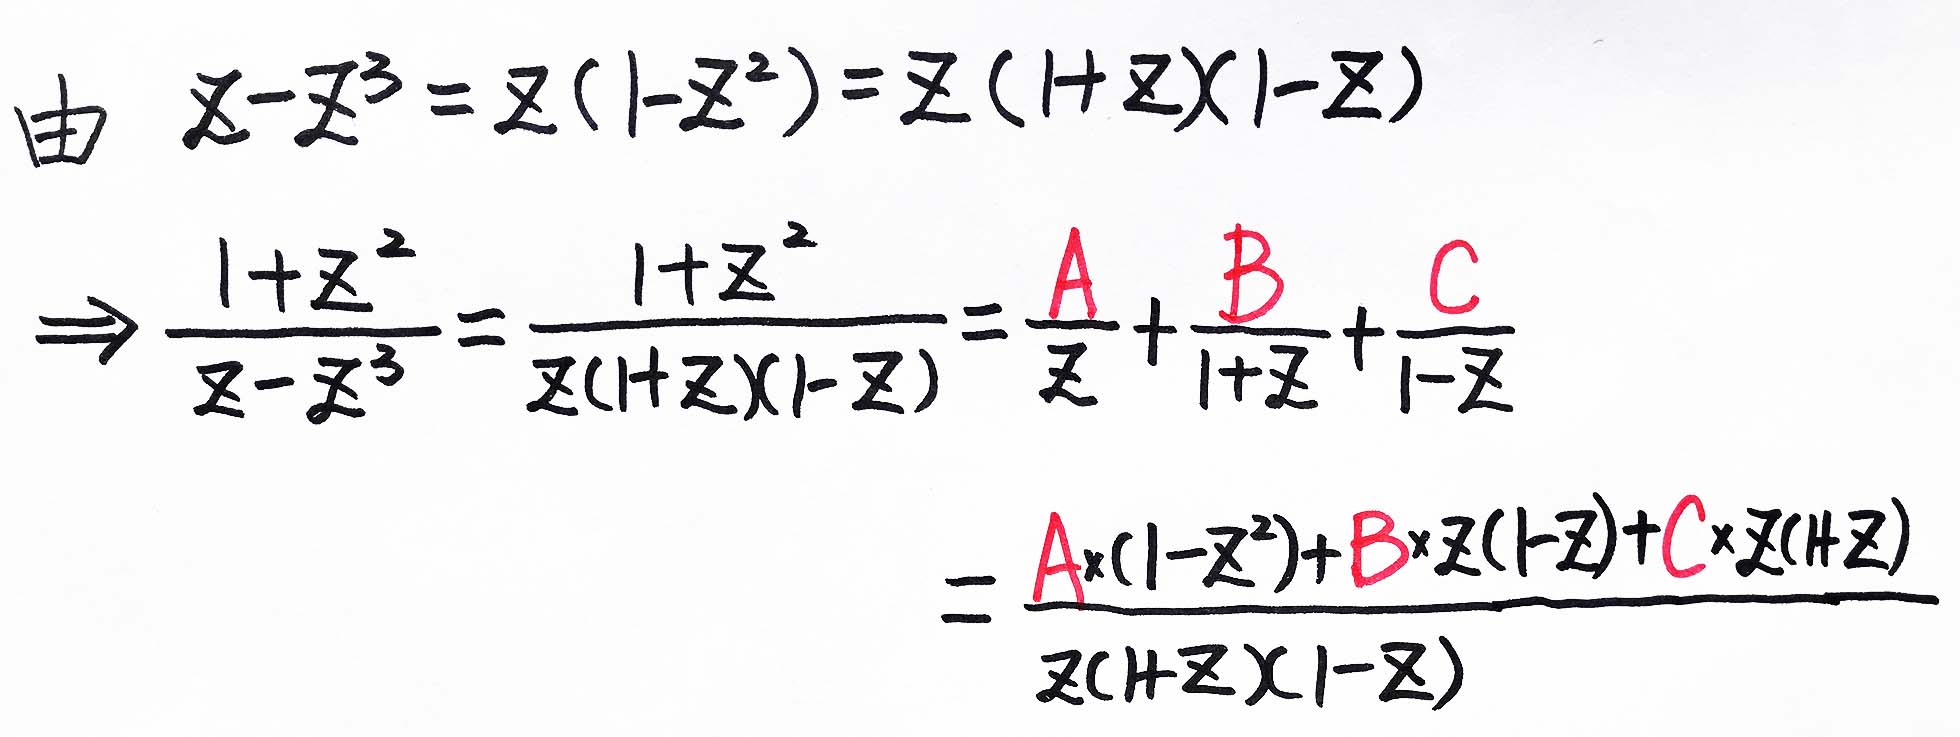 由 z-z³=z(1-z²)=z(1+z)(1-z)
⇒ (1+z²)/(z-z³) = (1+z²)/(z(1+z)(1-z)) = A/z + B/(1+z) + C/(1-z)
= (A×(1-z²)+B×z(1-z)+C×z(1+z))/(z(1+z)(1-z))